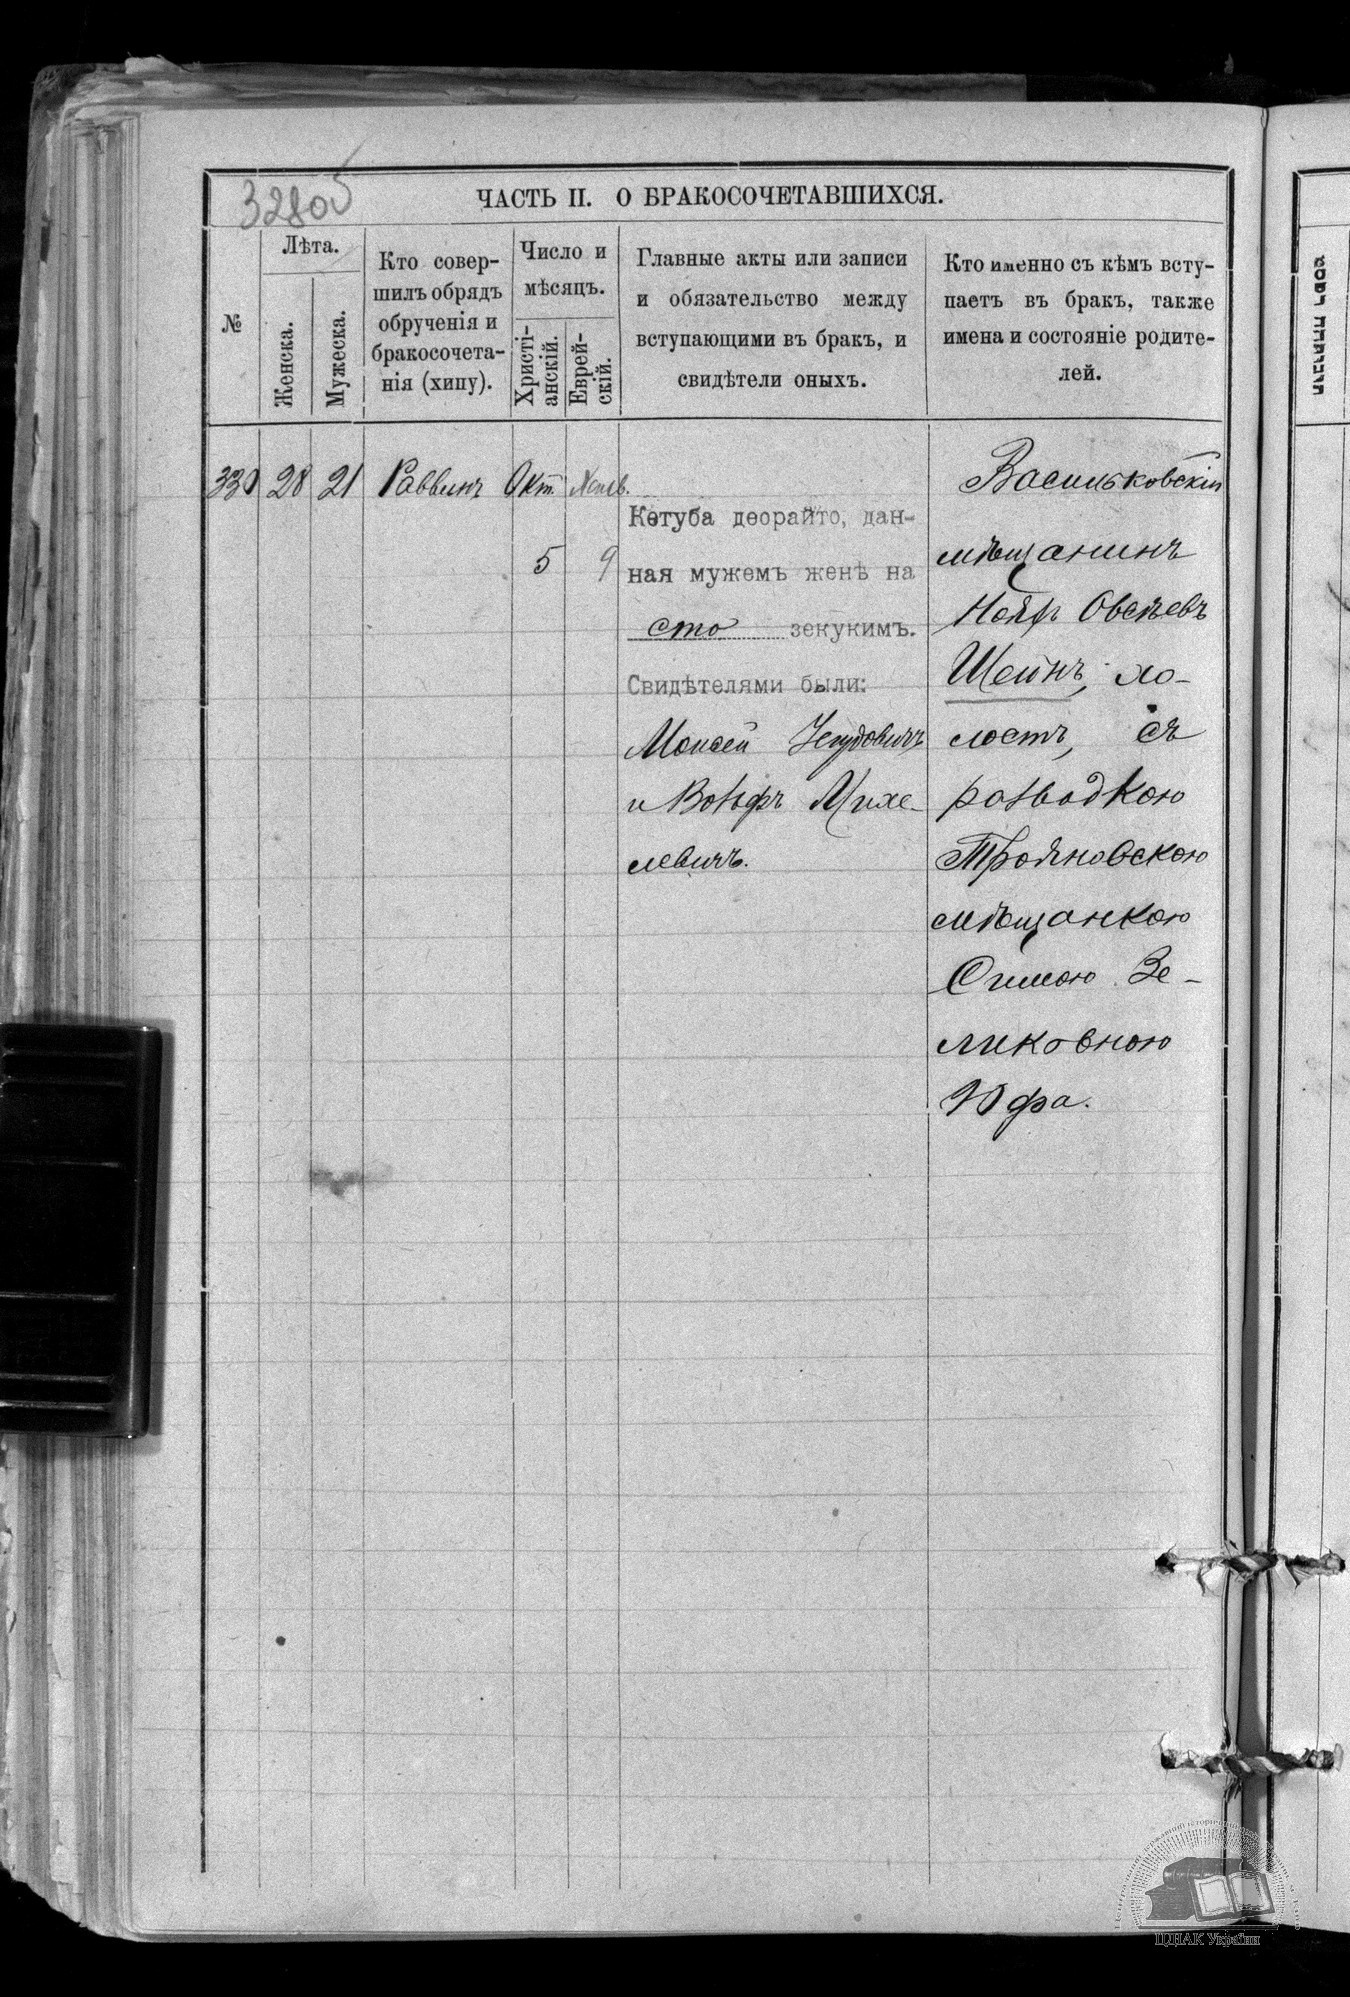 32805
ЧАСТЬ II. О БРАКОСОЧЕТАВШИХСЯ.
№
Лѣта.
Женска.
Мужеска.
Кто совер-
шилъ обрядъ
обрученія и
бракосочета-
нія (хипу).
Число и
мѣсяцъ.
Христі-
анскій.
Еврей-
скій.
Главные акты или записи
и обязательство между
вступающими въ бракъ, и
свидѣтели оныхъ.
Кто именно съ кѣмъ всту-
паетъ въ бракъ, также
имена и состояніе родите-
лей.
330 28 21 Раввинъ Окт.
5 9
Кетуба деорайто, дан-
ная мужемъ женѣ на
сто зекукимъ.
Свидѣтелями были:
Моисей
и Вольфъ Михе-
левичъ.
Васильковскій
мѣщанинъ
Овсѣевъ
Шейнъ, хо-
лостъ, съ
розводкою
Трояновскою
мѣщанкою
Симою Зе-
ликовною
Юфа.
ЦДІАК України